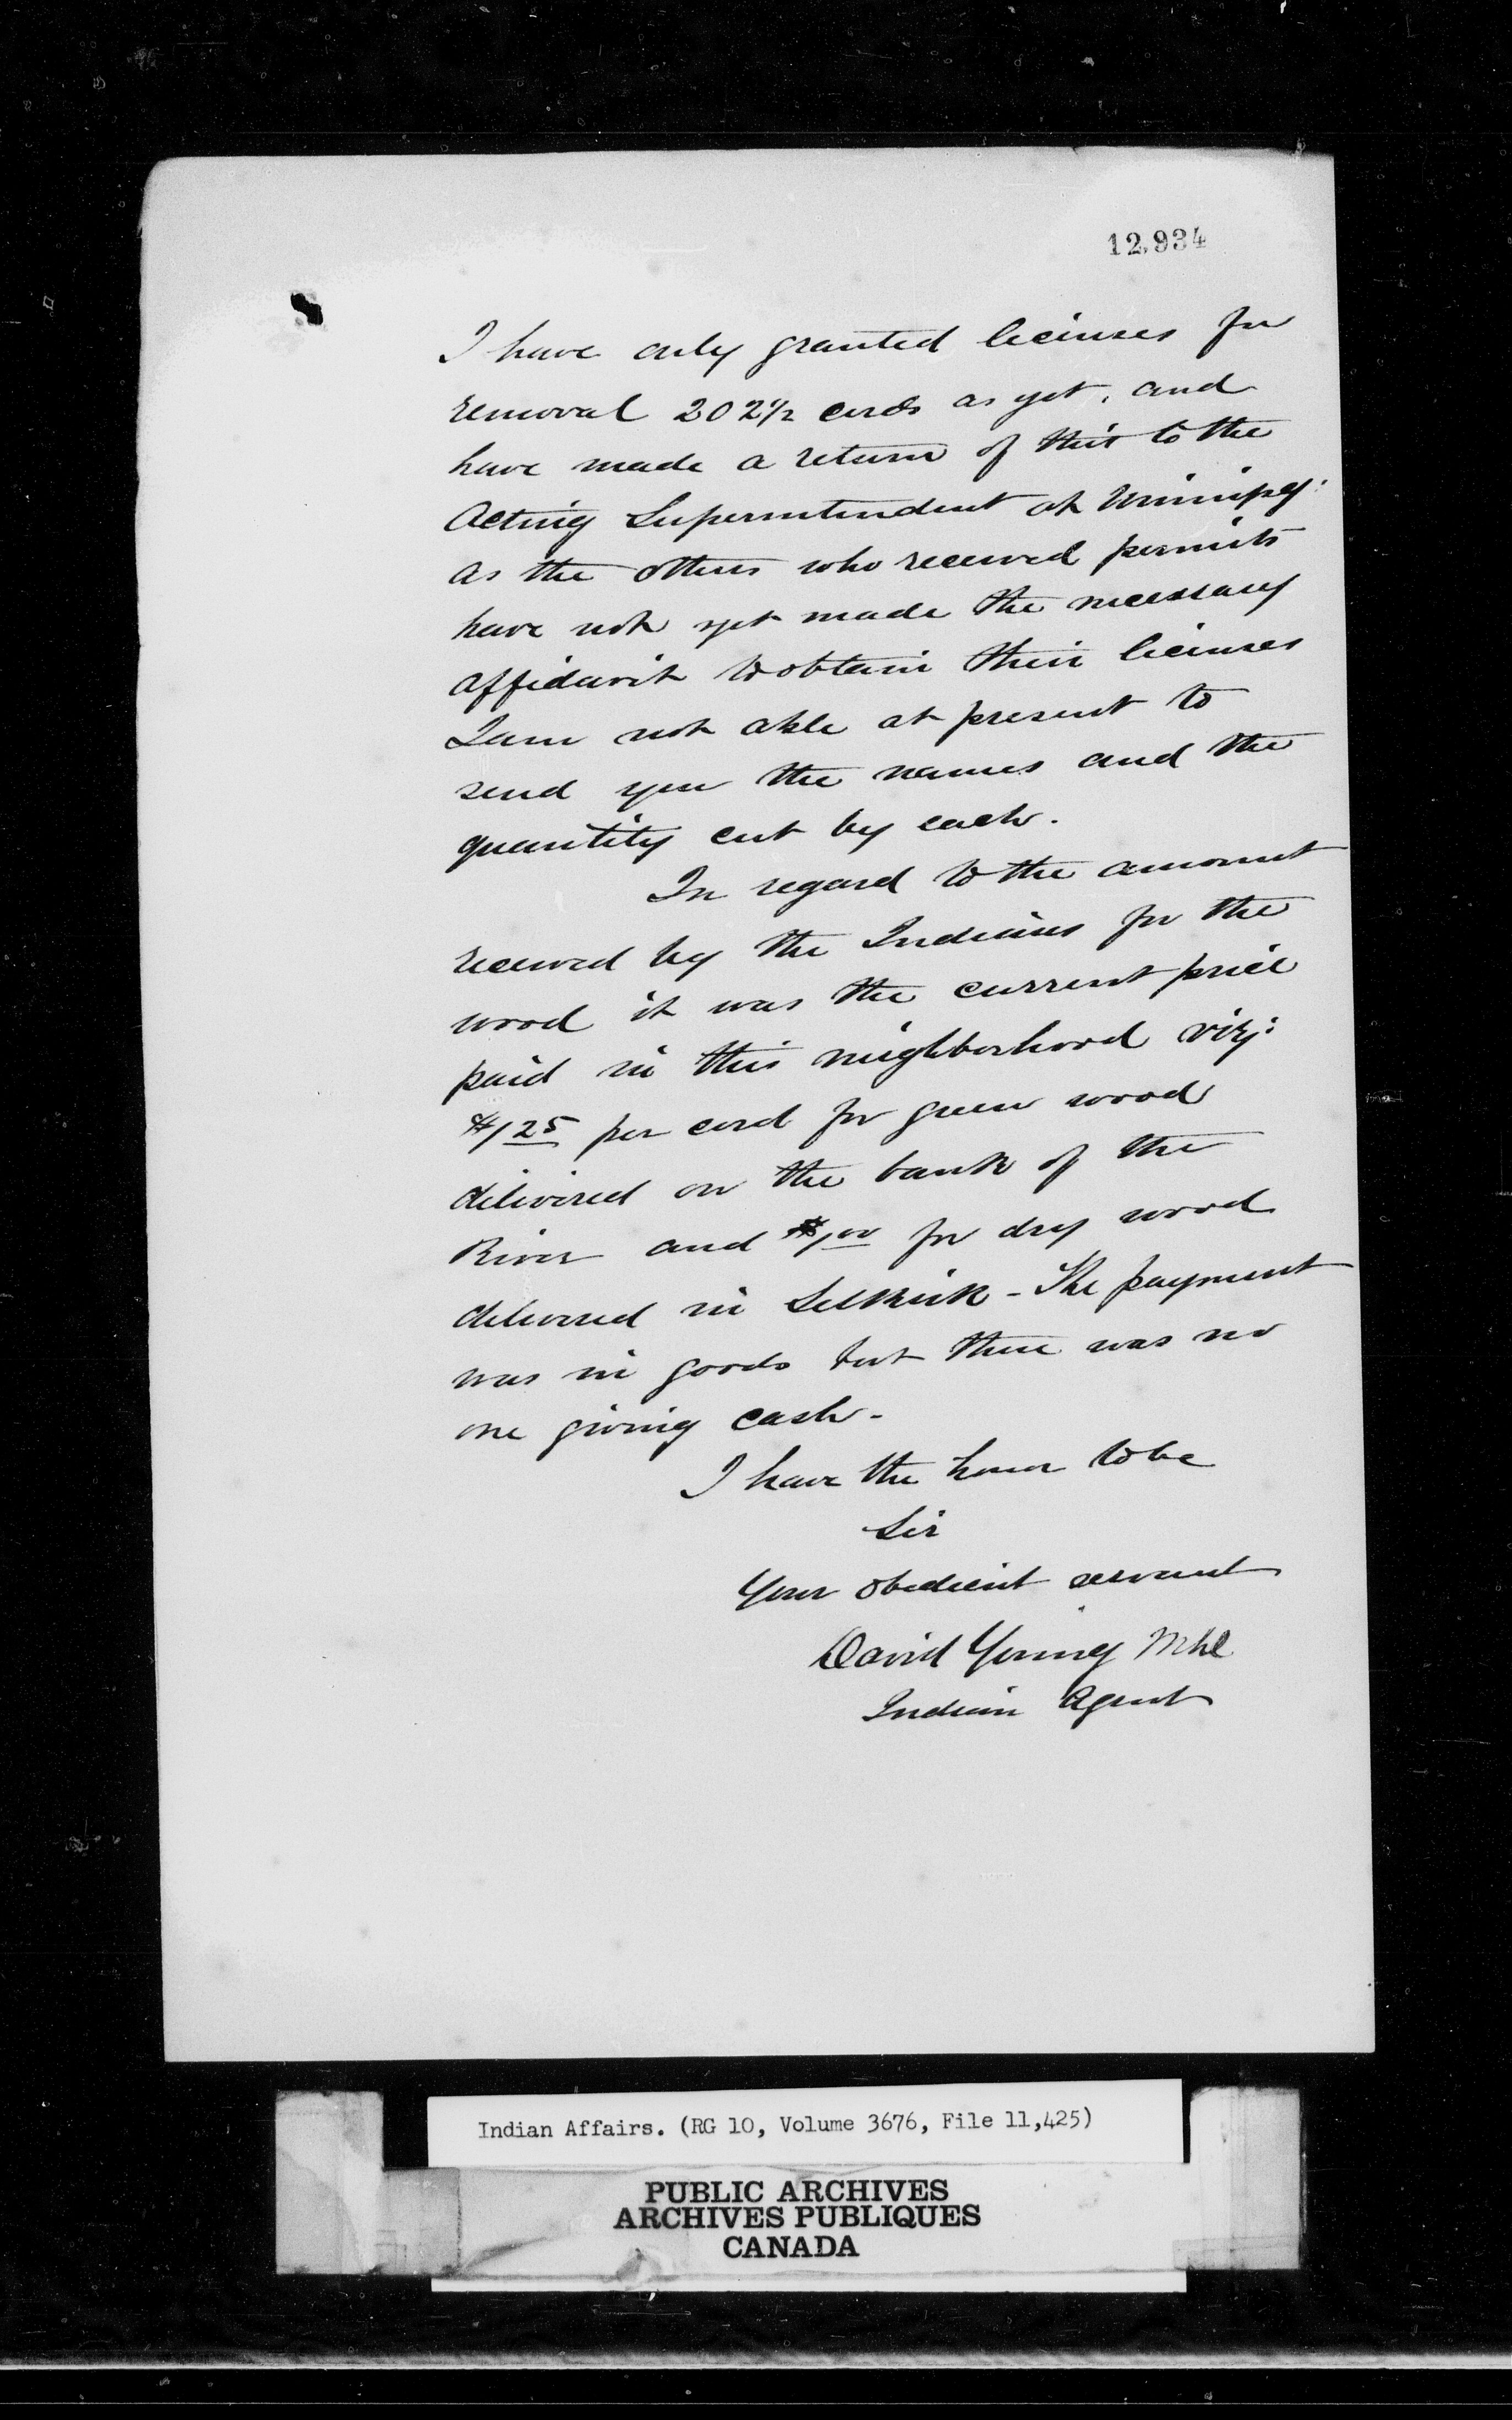 12,934
I have only granted licenses for
removal 202½ cords as yet, and
have made a return of this to the
Acting Superintendent at Winnipeg:
as the others who received permits
have not yet made the necessary
affidavit to obtain their licenses
I am not able at present to
send you the names and the
quantity cut by each.
In regard to the amount
received by the Indians for the
wood it was the current price
paid in this neighborhood viz:
$1.25 per cord for green wood
delivered on the bank of the
River and for dry wood
delivered in Selkirk - The payment
was in goods but there was no
one giving cash -
I have the honor to be
Sir
Your obedient servant
David Young
Indian Agent
Indian Affairs. (RG 10, Volume 3676, File 11,425)
PUBLIC ARCHIVES
ARCHIVES PUBLIQUES
CANADA